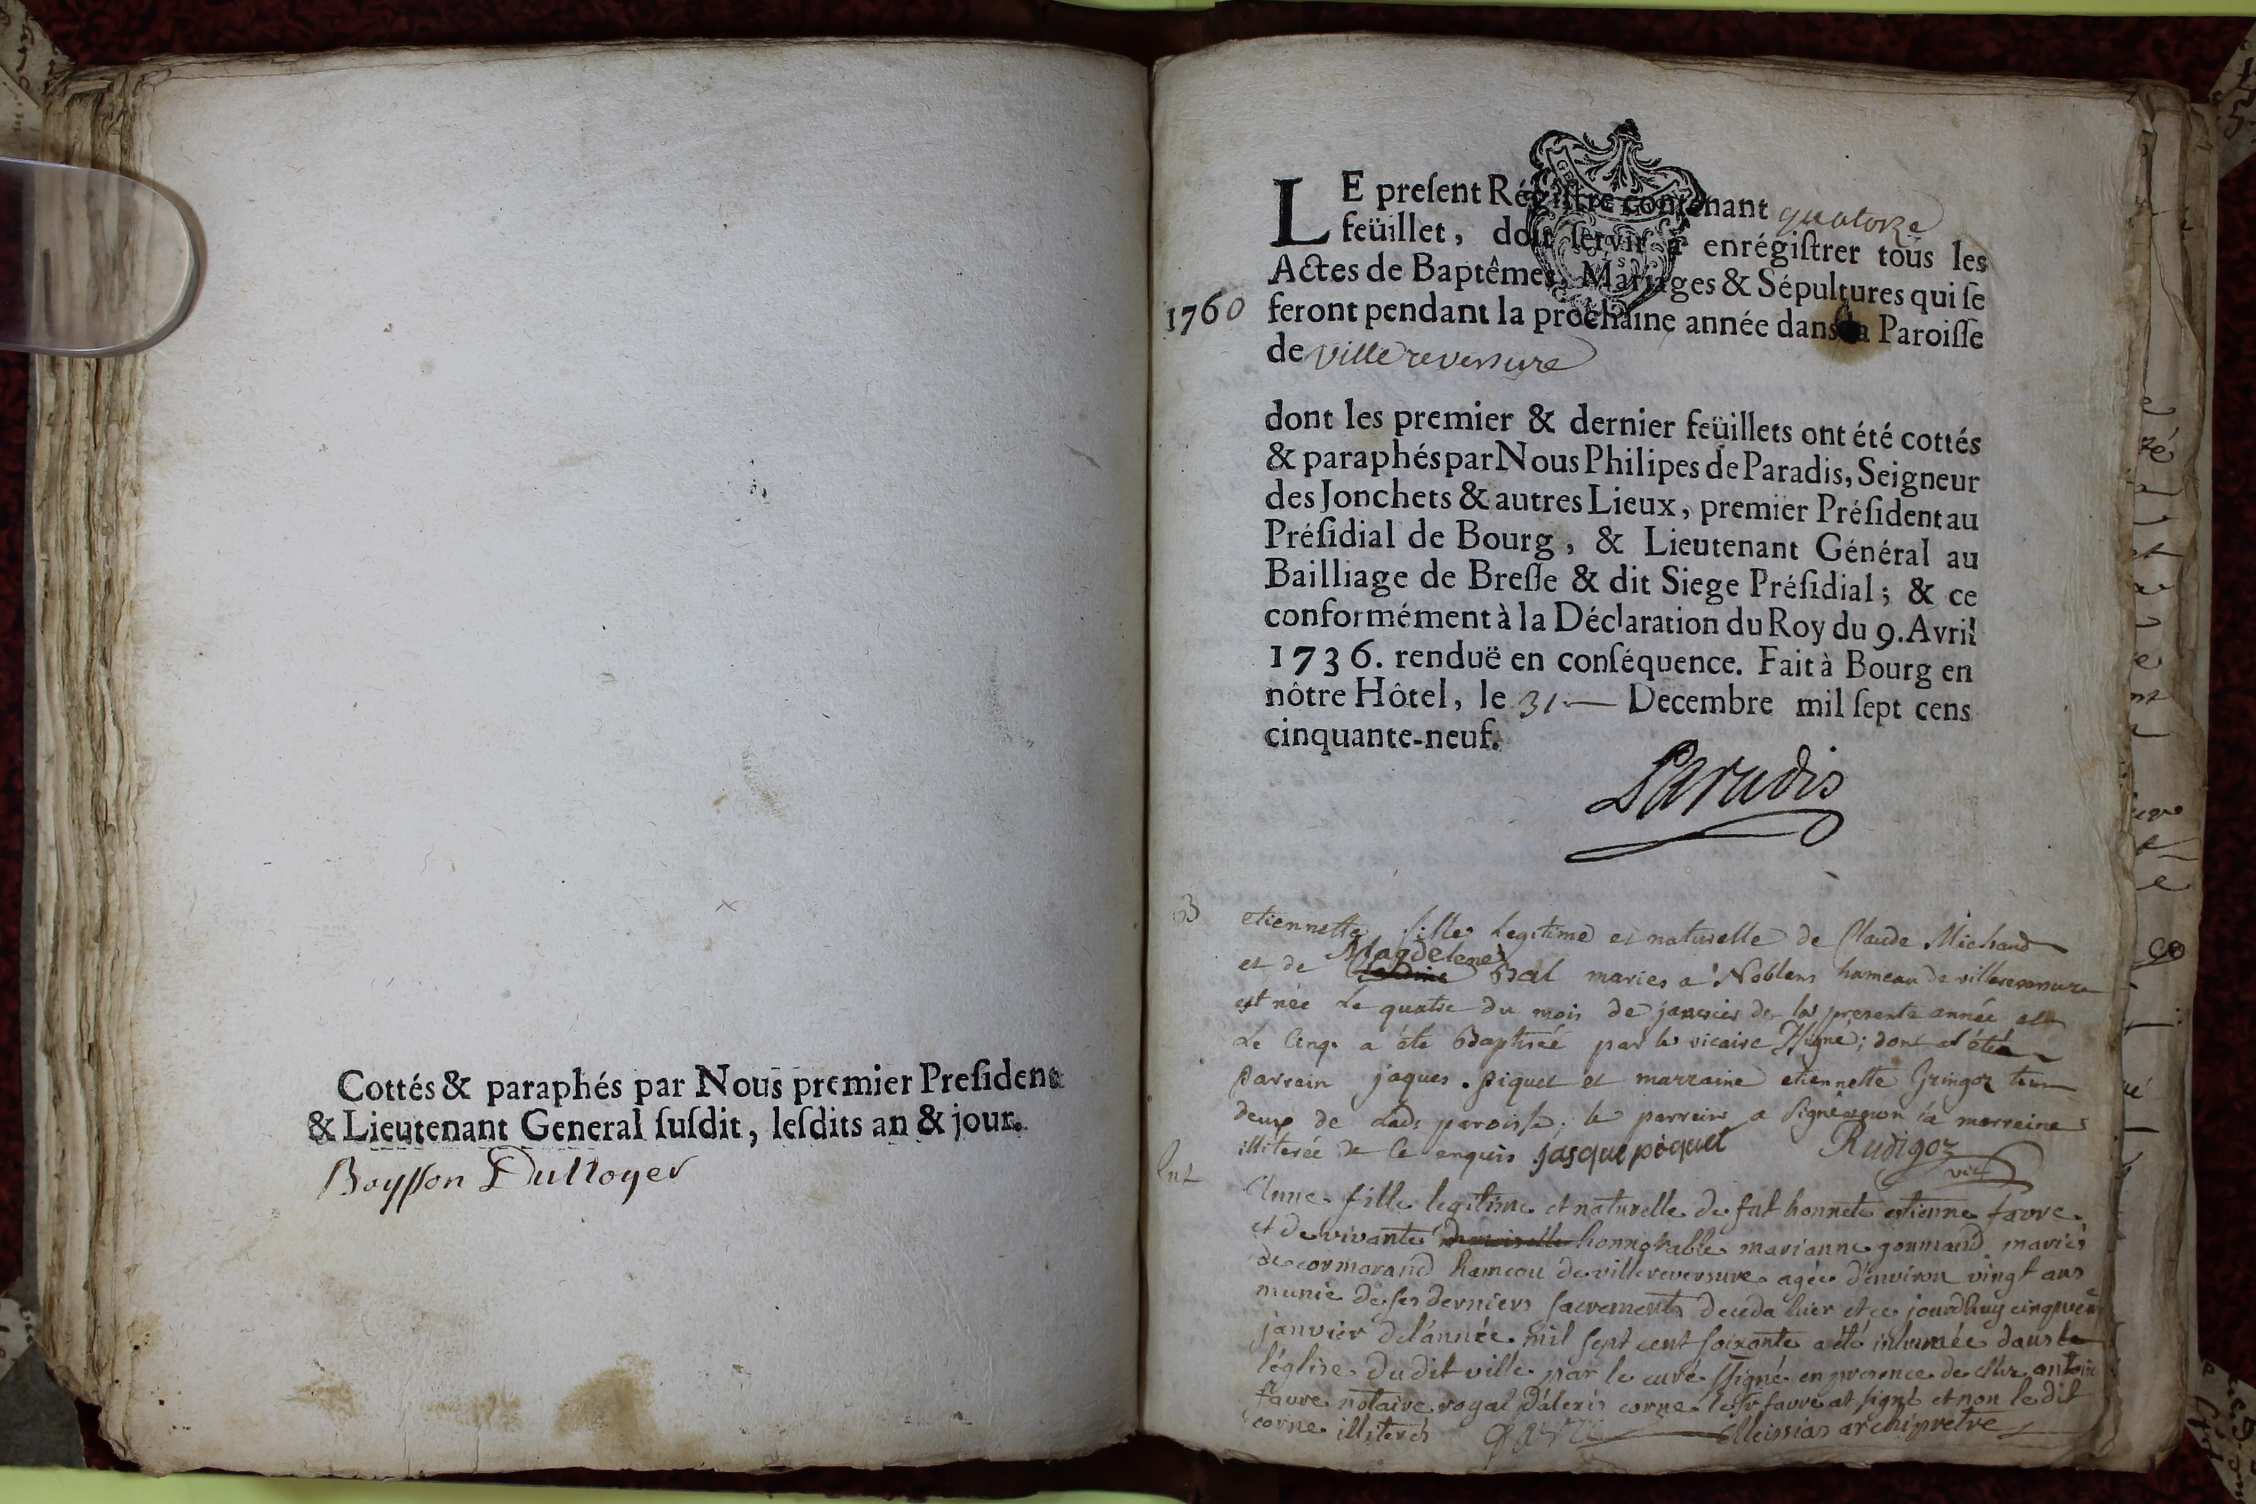 Cottés & paraphés par Nous premier President
& Lieutenant General ſuſdit, leſdits an & jour.
Boyſſon Dulloyer
LE preſent Régiſtre contenant quatorze
feüillet, doit ſervir à enrégiſtrer tous les
Actes de Baptêmes, Mariages & Sépultures qui ſe
1760 feront pendant la prochaine année dans la Paroiſſe
de Villereversure
dont les premier & dernier feüillets ont été cottés
& paraphés par Nous Philipes de Paradis, Seigneur
des Jonchets & autres Lieux, premier Préſident au
Préſidial de Bourg, & Lieutenant Général au
Bailliage de Breſſe & dit Siege Préſidial; & ce
conformément à la Déclaration du Roy du 9. Avril
1736. renduë en conſéquence. Fait à Bourg en
nôtre Hôtel, le 31 — Decembre mil ſept cens
cinquante-neuf.
Paradis
B etiennette fille legitime et naturelle de Claude Michaud
Magdelene
et de Bal maries a Noblens hameau de villereversure
est née le quatre du mois de janvier de la presente année et
le cinq a été Baptisée par le vicaire ssigné; dont a été
parrain jaques piquet et marraine etiennette Gringoz tous
deux de ladᵉ paroisse, le parrein a signé non la marreine
illiterée de ce enquis jasque piquet Rudigoz
vic
Ent Anne fille legitime et naturelle de fut honnete estienne favre
et de vivante demoiselle honnorable marianne gourmand mariés
de cormorand hameau de villereversure agée d'environ vingt ans
munie de ses derniers sacrements deceda hier et ce jourdhuy cinquieme
janvier de l'année mil sept cent soixante a été inhumée dans
l'église du dit ville par le curé ssigné en presence de Mᵉ antoine
favre notaire royal d'alexis corne le sʳ favre at signé et non le dit
corne illiterés favre Meissias archiprêtre